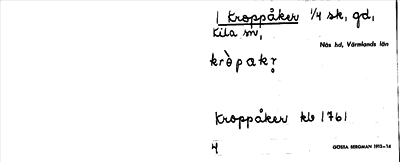 1 Kroppåker 1/4 sk, gd,
Kila sn,
Näs hd, Värmlands län
kròpakr̥
Kroppåker kb 1761
4
GÖSTA BERGMAN 1913-14